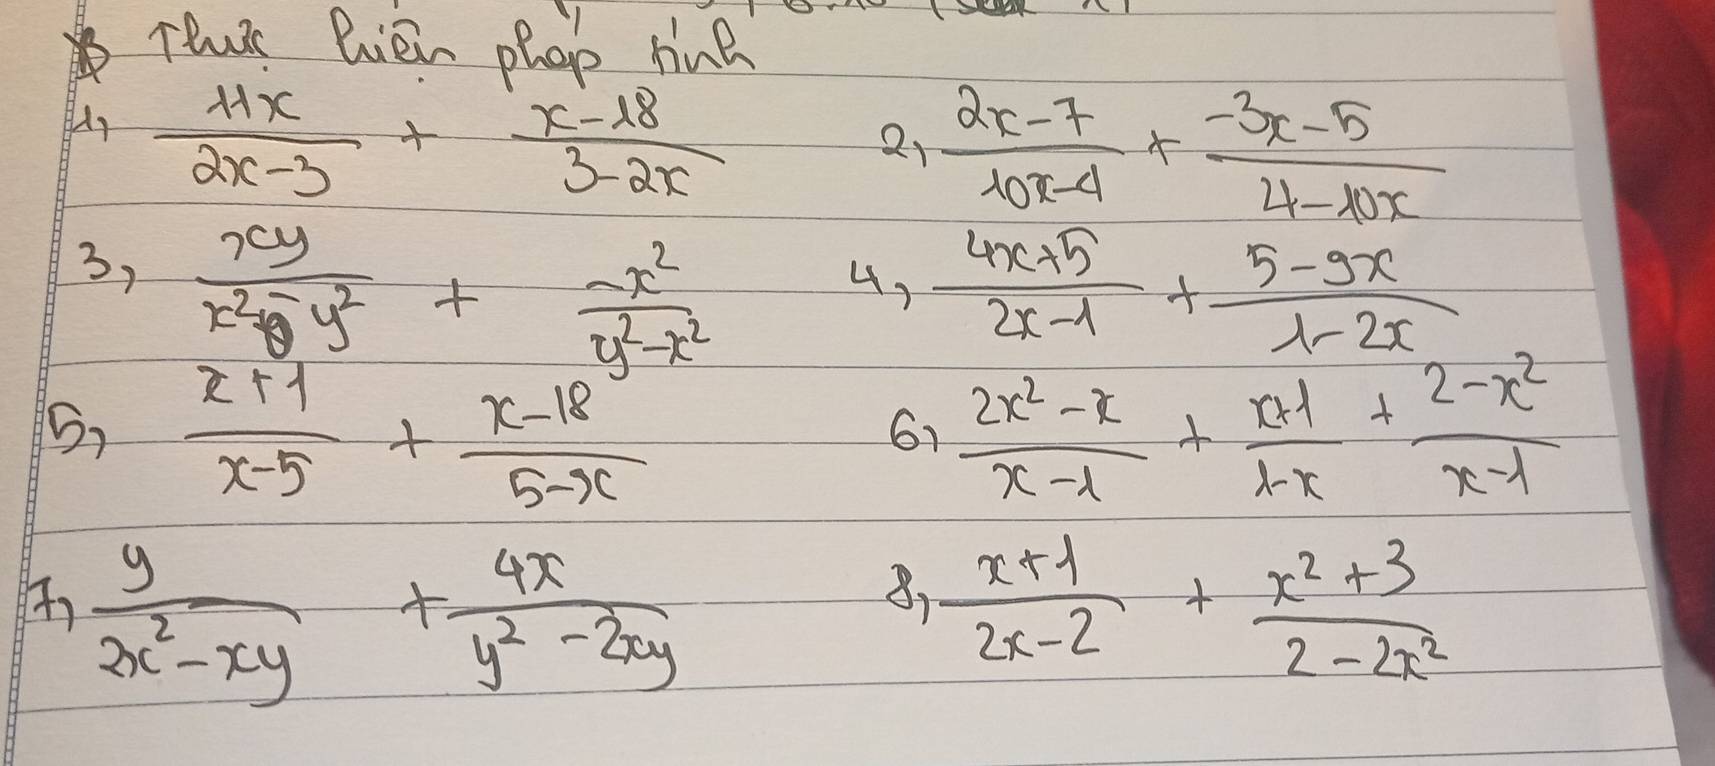 Thực hiện phép tính
1, \frac{11x}{2x-3} + \frac{x-18}{3-2x} 2, \frac{2x-7}{10x-4} + \frac{-3x-5}{4-10x}
3, \frac{xy}{x^2-y^2} + \frac{-x^2}{y^2-x^2} 4, \frac{4x+5}{2x-1} + \frac{5-9x}{1-2x}
5, \frac{x+1}{x-5} + \frac{x-18}{5-x} 6, \frac{2x^2-x}{x-1} + \frac{x+1}{1-x} + \frac{2-x^2}{x-1}
7, \frac{y}{2x^2-xy} + \frac{4x}{y^2-2xy} 8, \frac{x+1}{2x-2} + \frac{x^2+3}{2-2x^2}